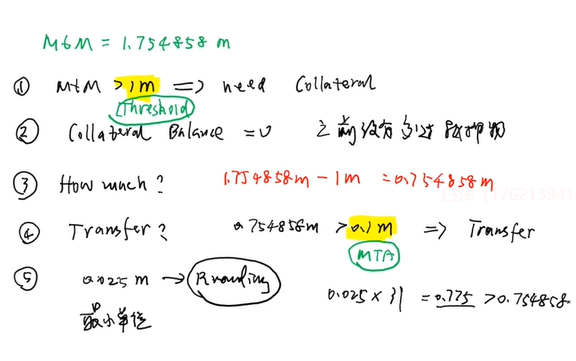 MtM = 1.754858 m
① MtM > 1m => need Collateral
Threshold
② Collateral Balance = 0 之前没有交过抵押物
③ How much? 1.754858m - 1m = 0.754858m
④ Transfer? 0.754858m > 0.1m => Transfer
MTA
⑤ 0.025 m → Rounding
0.025 x 31 = 0.775 > 0.754858
最小单位